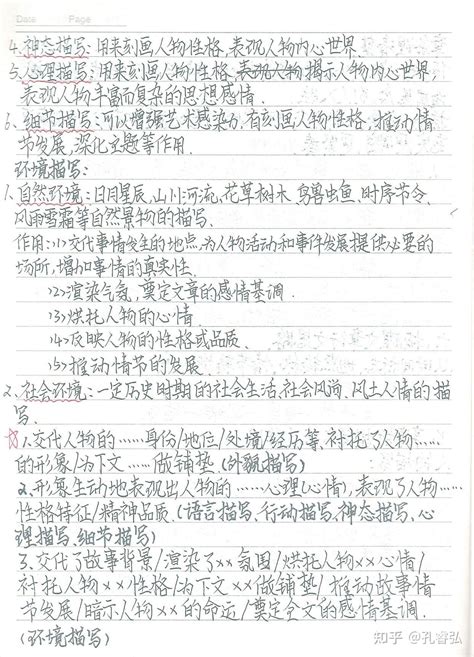 Date    Page
4.神态描写:用来刻画人物性格,表现人物内心世界.
5.心理描写:用来刻画人物性格,表现人物揭示人物内心世界,
表现人物丰富而复杂的思想感情.
6、细节描写:可以增强艺术感染力,有刻画人物性格,推动情
节发展,深化主题等作用.
环境描写:
1.自然环境:日月星辰,山川河流、花草树木、鸟兽虫鱼、时序节令、
风雨雪霜等自然景物的描写.
作用:(1)交代事情发生的地点,为人物活动和事件发展提供必要的
场所,增加事情的真实性.
(2)渲染气氛,奠定文章的感情基调.
(3)烘托人物的心情.
(4)反映人物的性格或品质.
(5)推动情节的发展.
2、社会环境:一定历史时期的社会生活、社会风尚、风土人情的描
写.
1.交代人物的……身份/地位/处境/经历等、衬托了人物……
的形象/为下文……做铺垫(外貌描写)
2、形象生动地表现出人物的……心理(心情),表现了人物……
性格特征/精神品质.(语言描写、行动描写、神态描写、心
理描写、细节描写)
3、交代了故事背景/渲染了××氛围/烘托人物××心情/
衬托人物××性格/为下文××做铺垫/推动故事情
节发展/暗示人物××的命运/奠定全文的感情基调.
(环境描写)
知乎 @孔睿弘